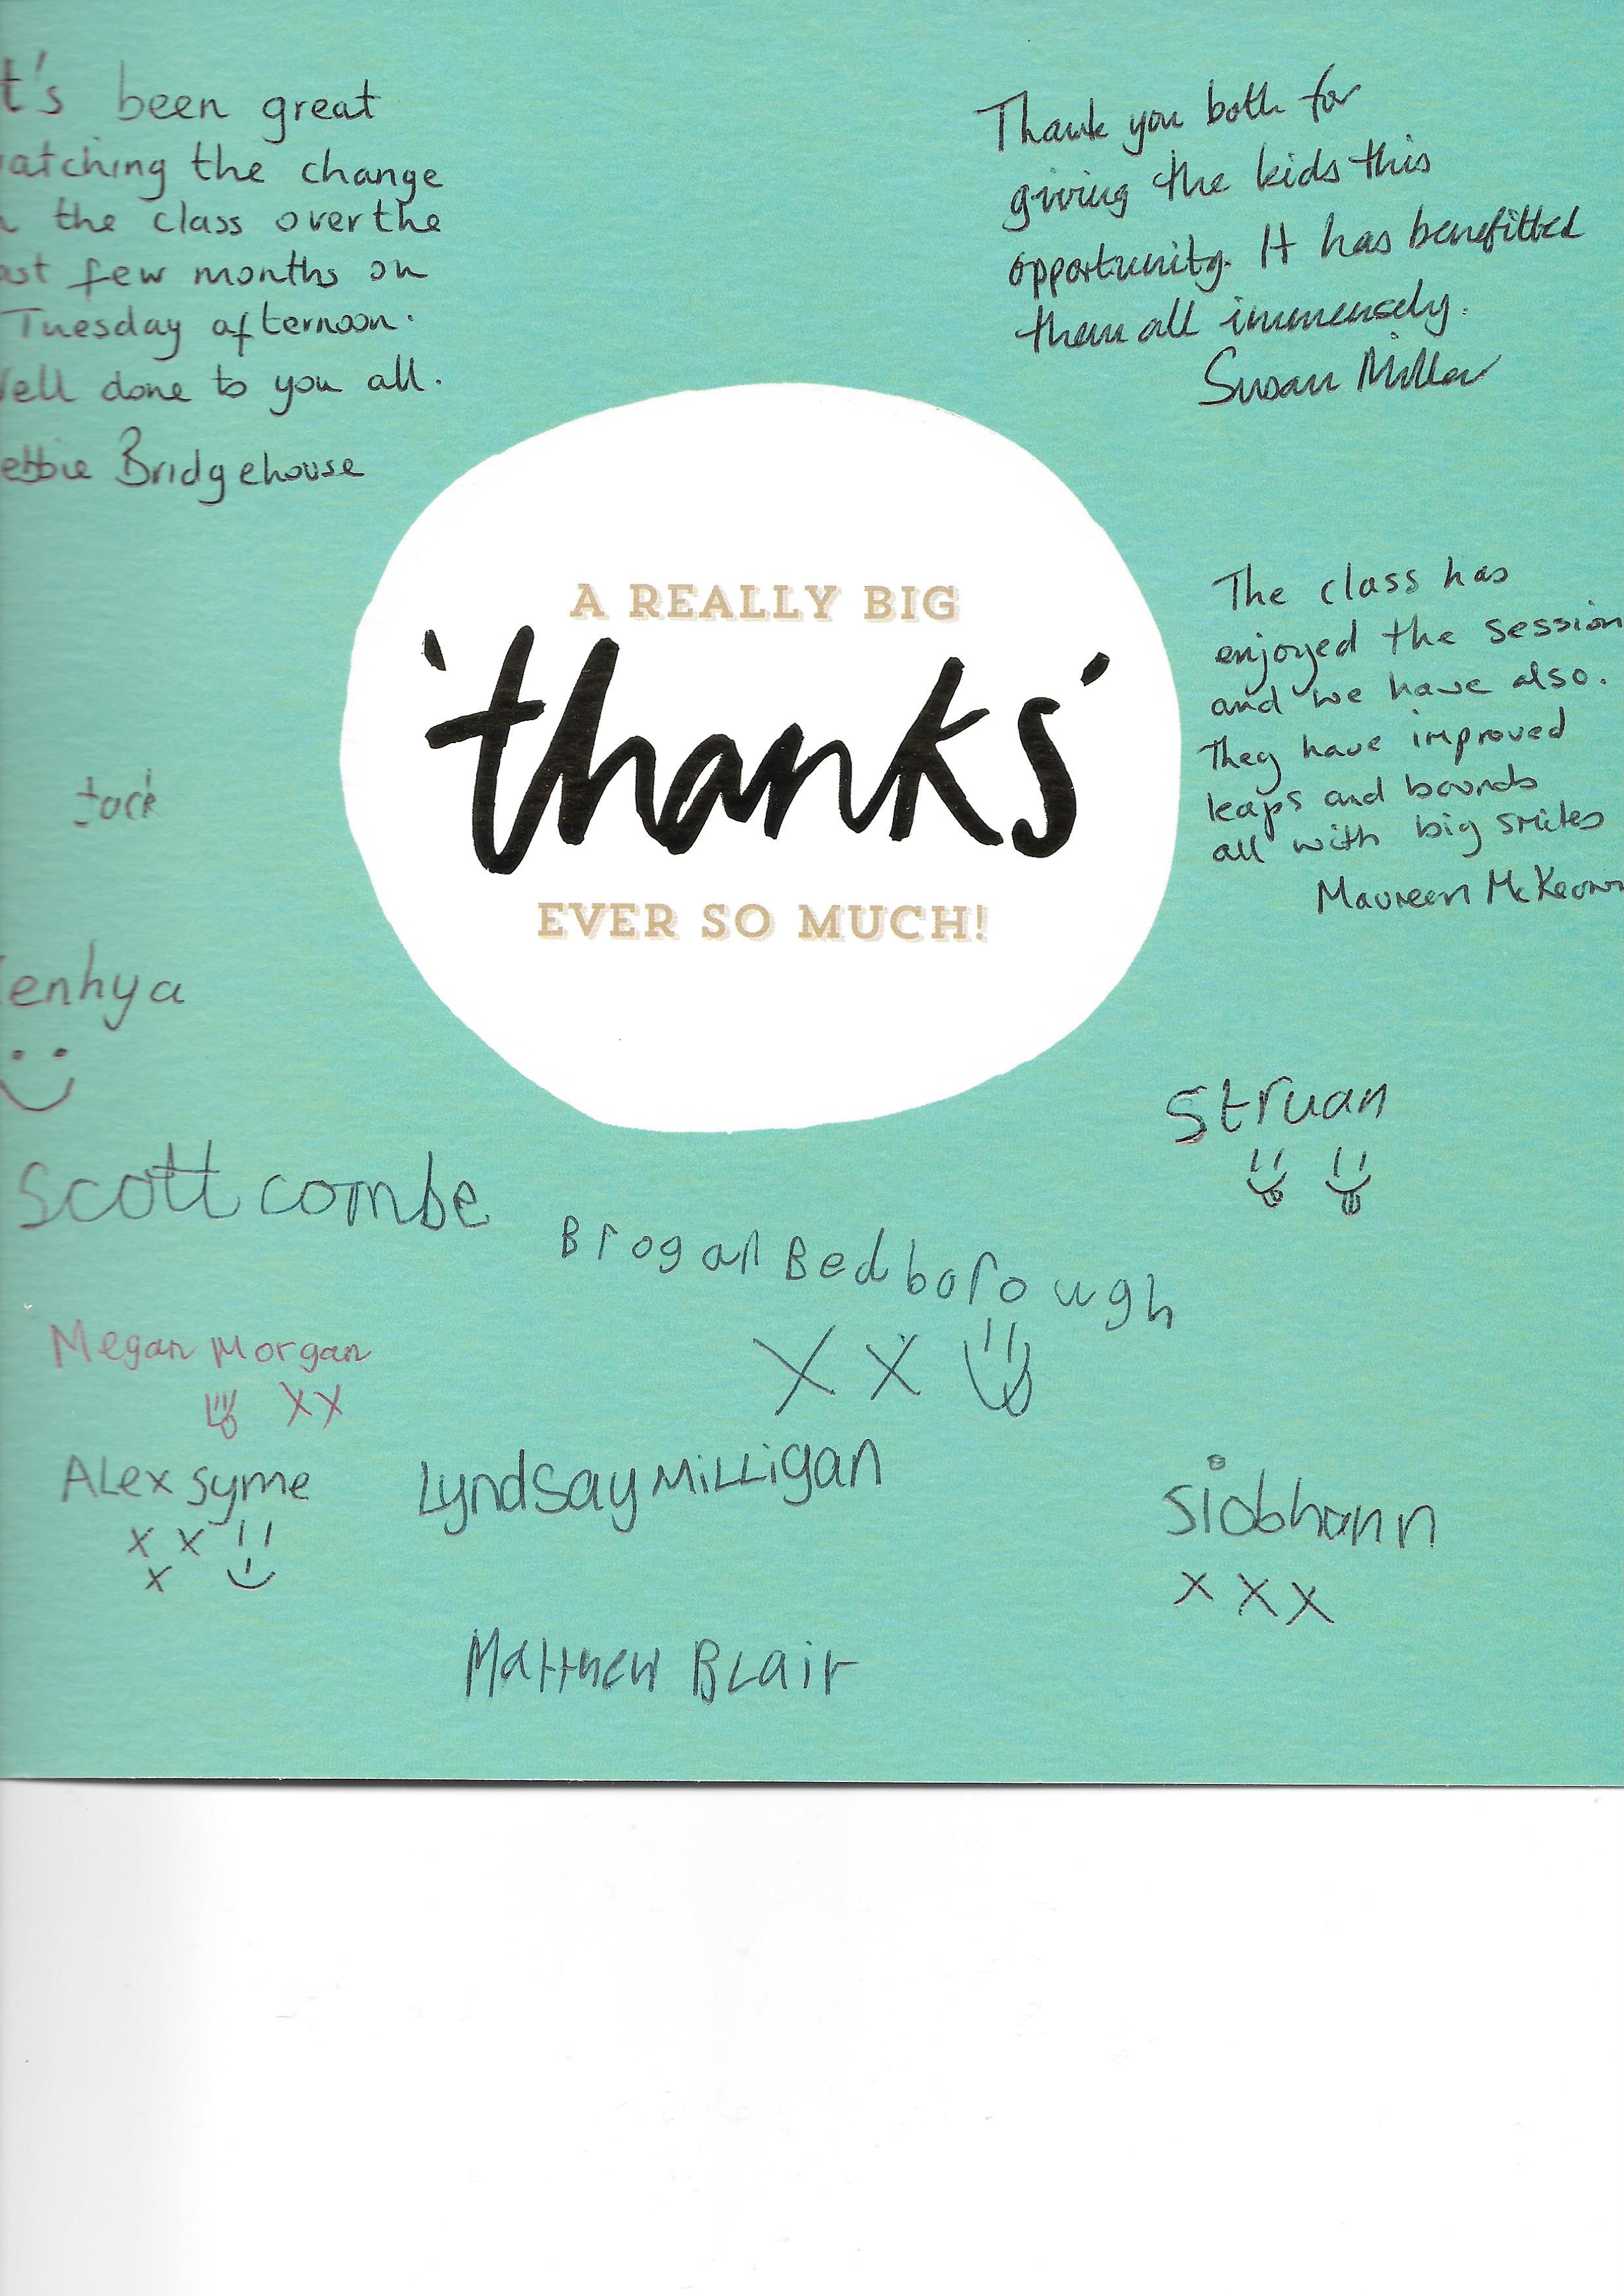 t's been great
atching the change
the class over the
ast few months on
Tuesday afternoon.
ell done to you all.
ebbie Bridgehouse
Thank you both for
giving the kids this
opportunity. It has benefitted
them all immensely.
Susan Miller
A REALLY BIG
'thanks'
EVER SO MUCH!
The class has
enjoyed the session
and we have also.
They have improved
leaps and bounds
all with big smiles
Maureen McKeown
Jack
enhya
Struan
Scott combe
Brogan Bedborough
X X
Megan Morgan
XX
Alex Syme
x x
x
Lyndsay Milligan
Siobhann
x x x
Matthew Blair